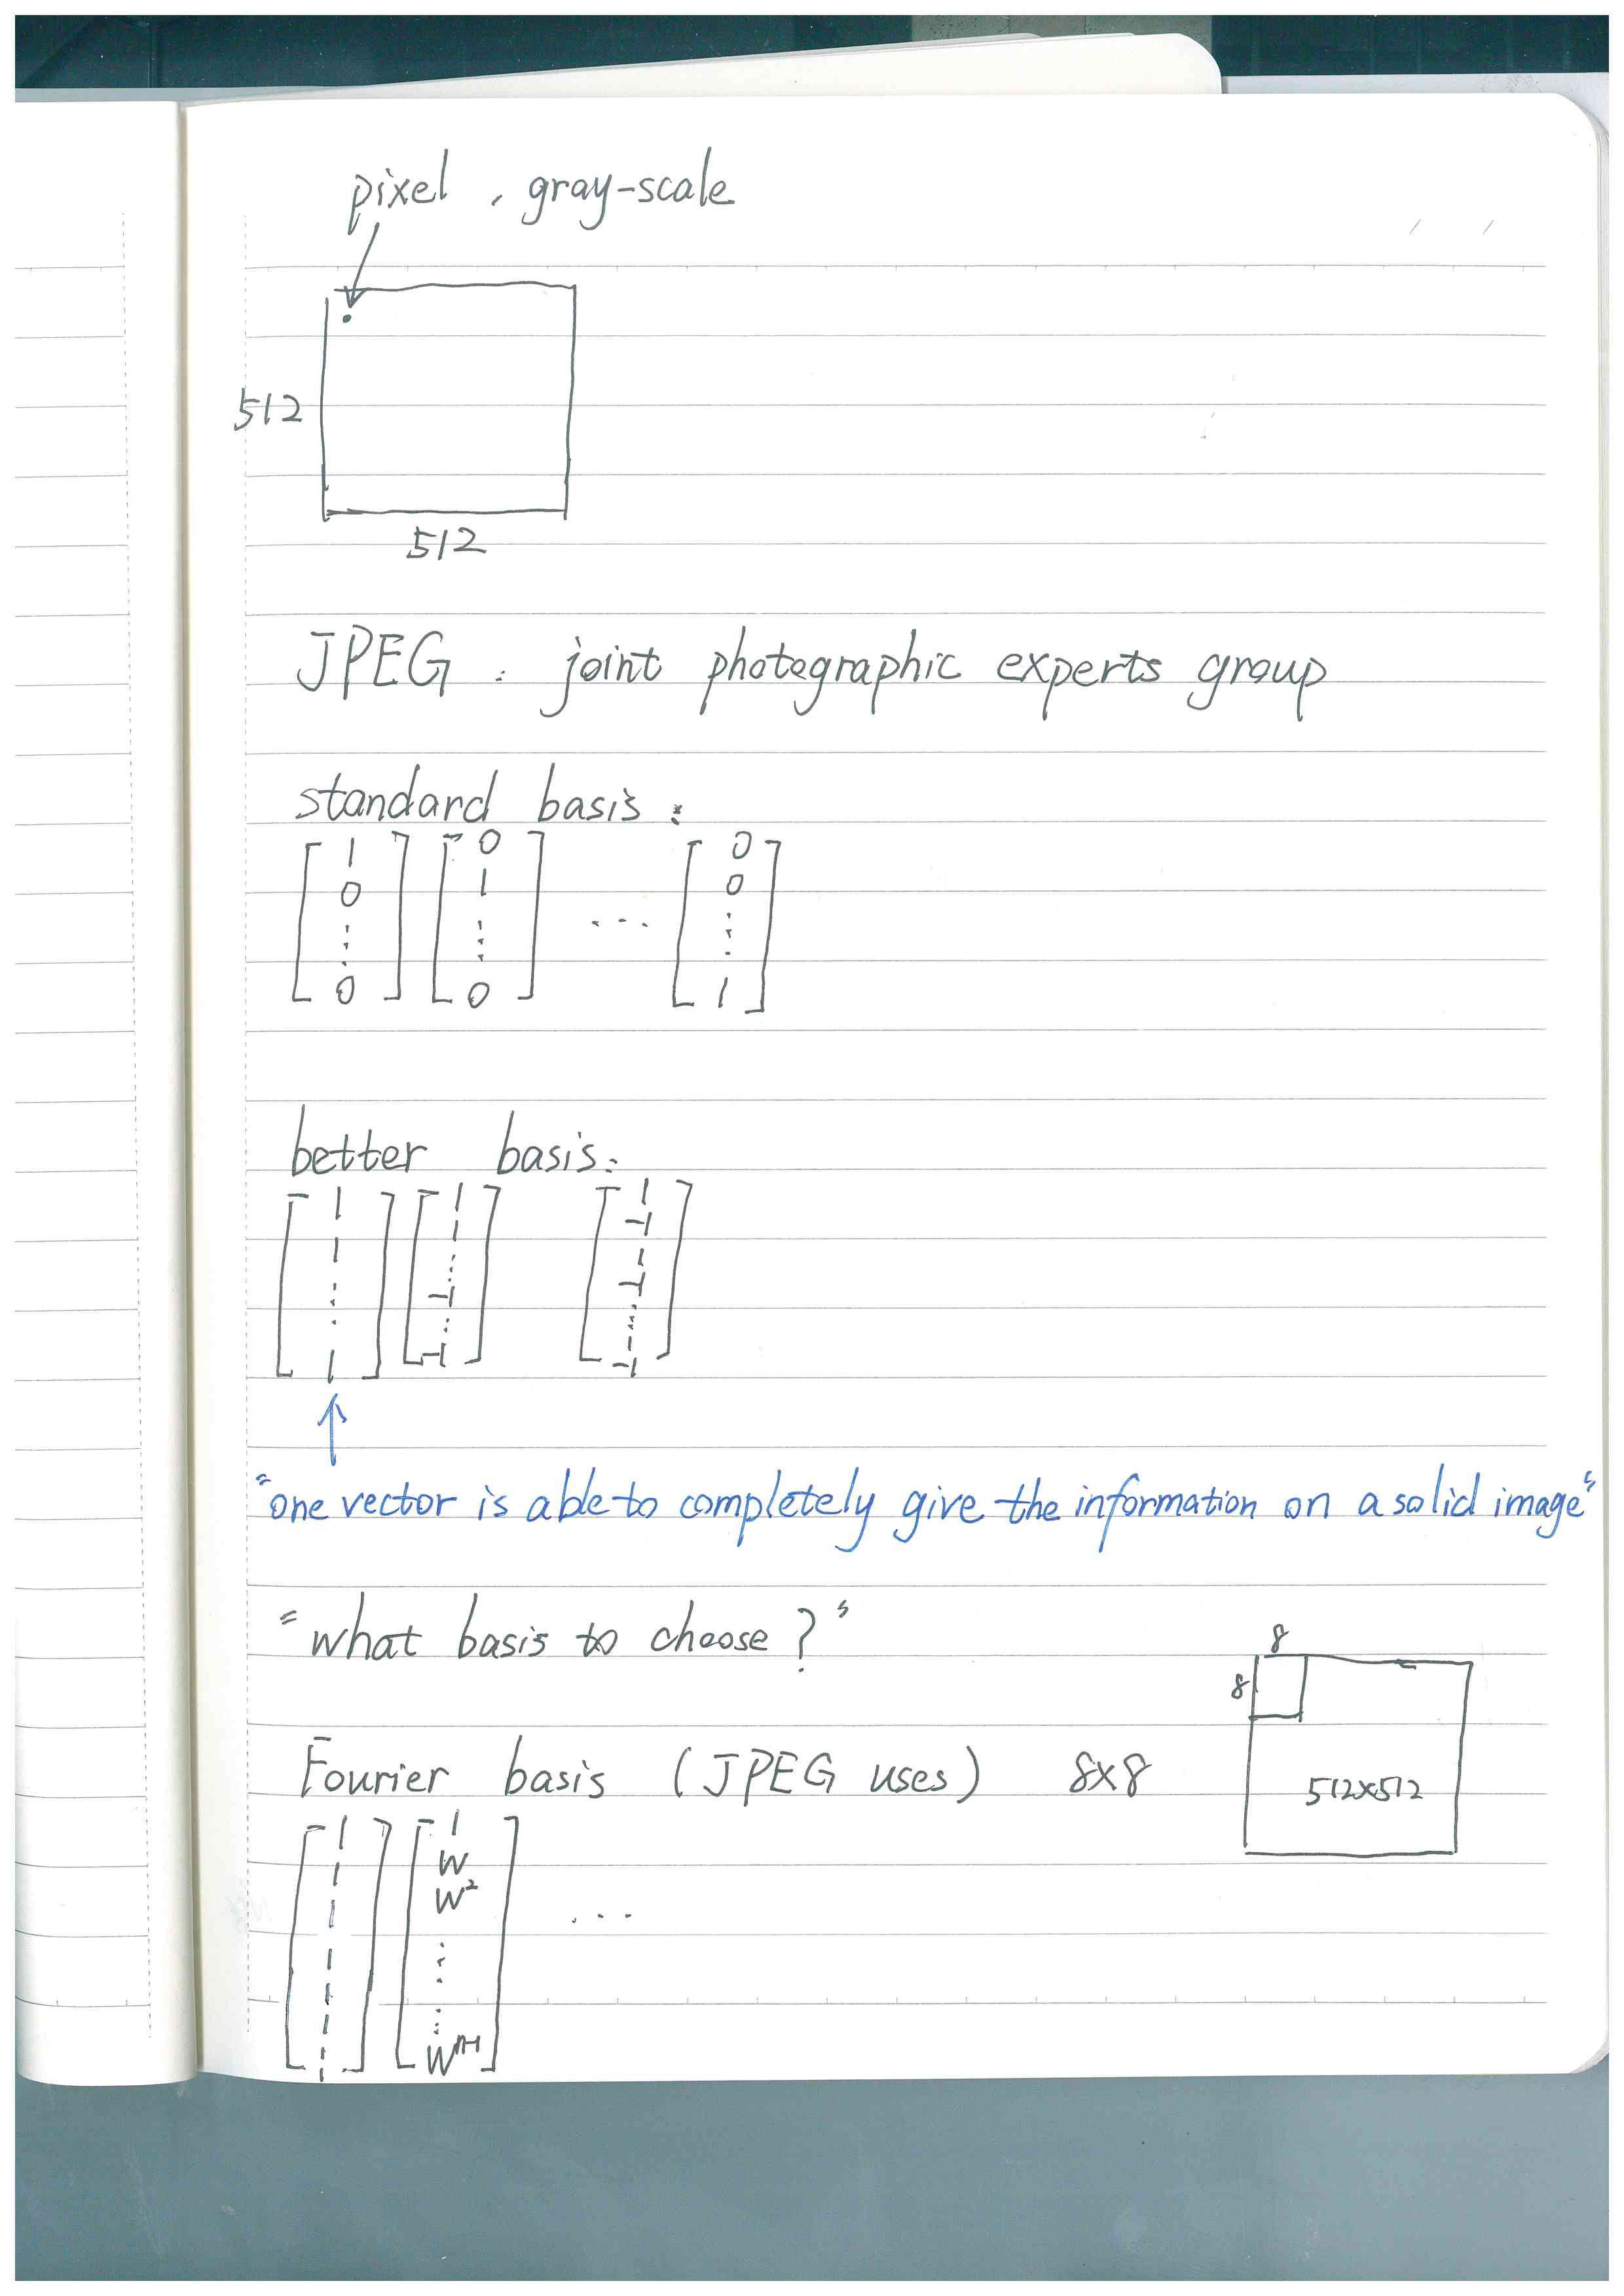 pixel, gray-scale
512
512
JPEG: joint photographic experts group
standard basis:
[1 0 ⋮ 0] [0 1 ⋮ 0] ... [0 0 ⋮ 1]
better basis:
[1 1 ⋮ 1] [1 1 ⋮ -1 ⋮ -1] [1 -1 1 -1 ⋮ 1 -1]
↑
"one vector is able to completely give the information on a solid image"
"what basis to choose?"
8
8
Fourier basis (JPEG uses) 8x8
512x512
[1 1 1 1 1 1 1] [1 W W² ⋮ ⋮ Wⁿ⁻¹] ...